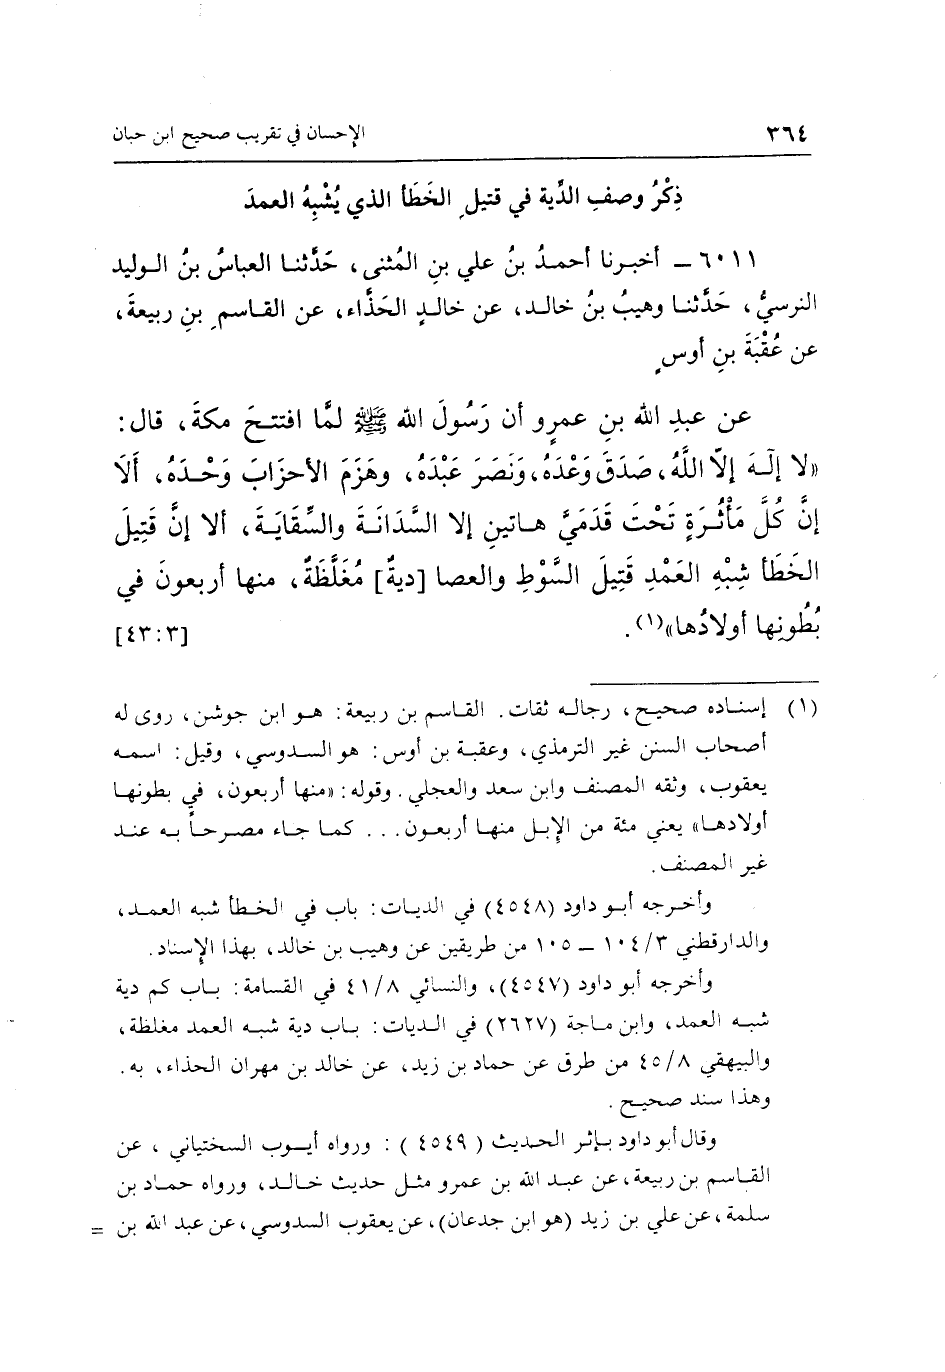 ٣٦٤ الإحسان في تقريب صحيح ابن حبان
ذِكْرُ وصفِ الدِّية في قتيلِ الخَطَأ الذي يُشْبِهُ العمدَ
٦٠١١ ـ أخبرنا أحمدُ بنُ علي بنِ المُثنى، حَدَّثنا العباسُ بنُ الوليد
النرسيُّ، حَدَّثنا وهيبُ بنُ خالد، عن خالدٍ الحَذَّاء، عن القاسمِ بنِ ربيعةَ،
عن عُقْبَةَ بنِ أوسٍ
عن عبدِ الله بنِ عمرٍو أن رَسُولَ الله ﷺ لمَّا افتتحَ مكةَ، قال:
«لا إلَهَ إلاَّ اللَّهُ، صَدَقَ وَعْدَهُ، وَنَصَرَ عَبْدَهُ، وهَزَمَ الأحزابَ وَحْدَهُ، أَلَا
إنَّ كُلَّ مَأْثُرَةٍ تَحْتَ قَدَمَيَّ هاتينِ إلا السَّدَانَةَ والسِّقَايَةَ، ألا إنَّ قَتِيلَ
الخَطَأ شِبْهِ العَمْدِ قَتِيلَ السَّوْطِ والعصا [ديةٌ] مُغَلَّظَةٌ، منها أربعونَ في
بُطُونِها أولادُها»(١). [٤٣:٣]
(١) إسناده صحيح، رجاله ثقات. القاسم بن ربيعة: هو ابن جوشن، روى له
أصحاب السنن غير الترمذي، وعقبة بن أوس: هو السدوسي، وقيل: اسمه
يعقوب، وثقه المصنف وابن سعد والعجلي. وقوله: «منها أربعون، في بطونها
أولادها» يعني مئة من الإبل منها أربعون... كما جاء مصرحاً به عند
غير المصنف.
وأخرجه أبو داود (٤٥٤٨) في الديات: باب في الخطأ شبه العمد،
والدارقطني ١٠٤/٣ ـ ١٠٥ من طريقين عن وهيب بن خالد، بهذا الإسناد.
وأخرجه أبو داود (٤٥٤٧)، والنسائي ٤١/٨ في القسامة: باب كم دية
شبه العمد، وابن ماجة (٢٦٢٧) في الديات: باب دية شبه العمد مغلظة،
والبيهقي ٤٥/٨ من طرق عن حماد بن زيد، عن خالد بن مهران الحذاء، به.
وهذا سند صحيح.
وقال أبو داود بإثر الحديث (٤٥٤٩): ورواه أيوب السختياني، عن
القاسم بن ربيعة، عن عبد الله بن عمرو مثل حديث خالد، ورواه حماد بن
سلمة، عن علي بن زيد (هو ابن جدعان)، عن يعقوب السدوسي، عن عبد الله بن =